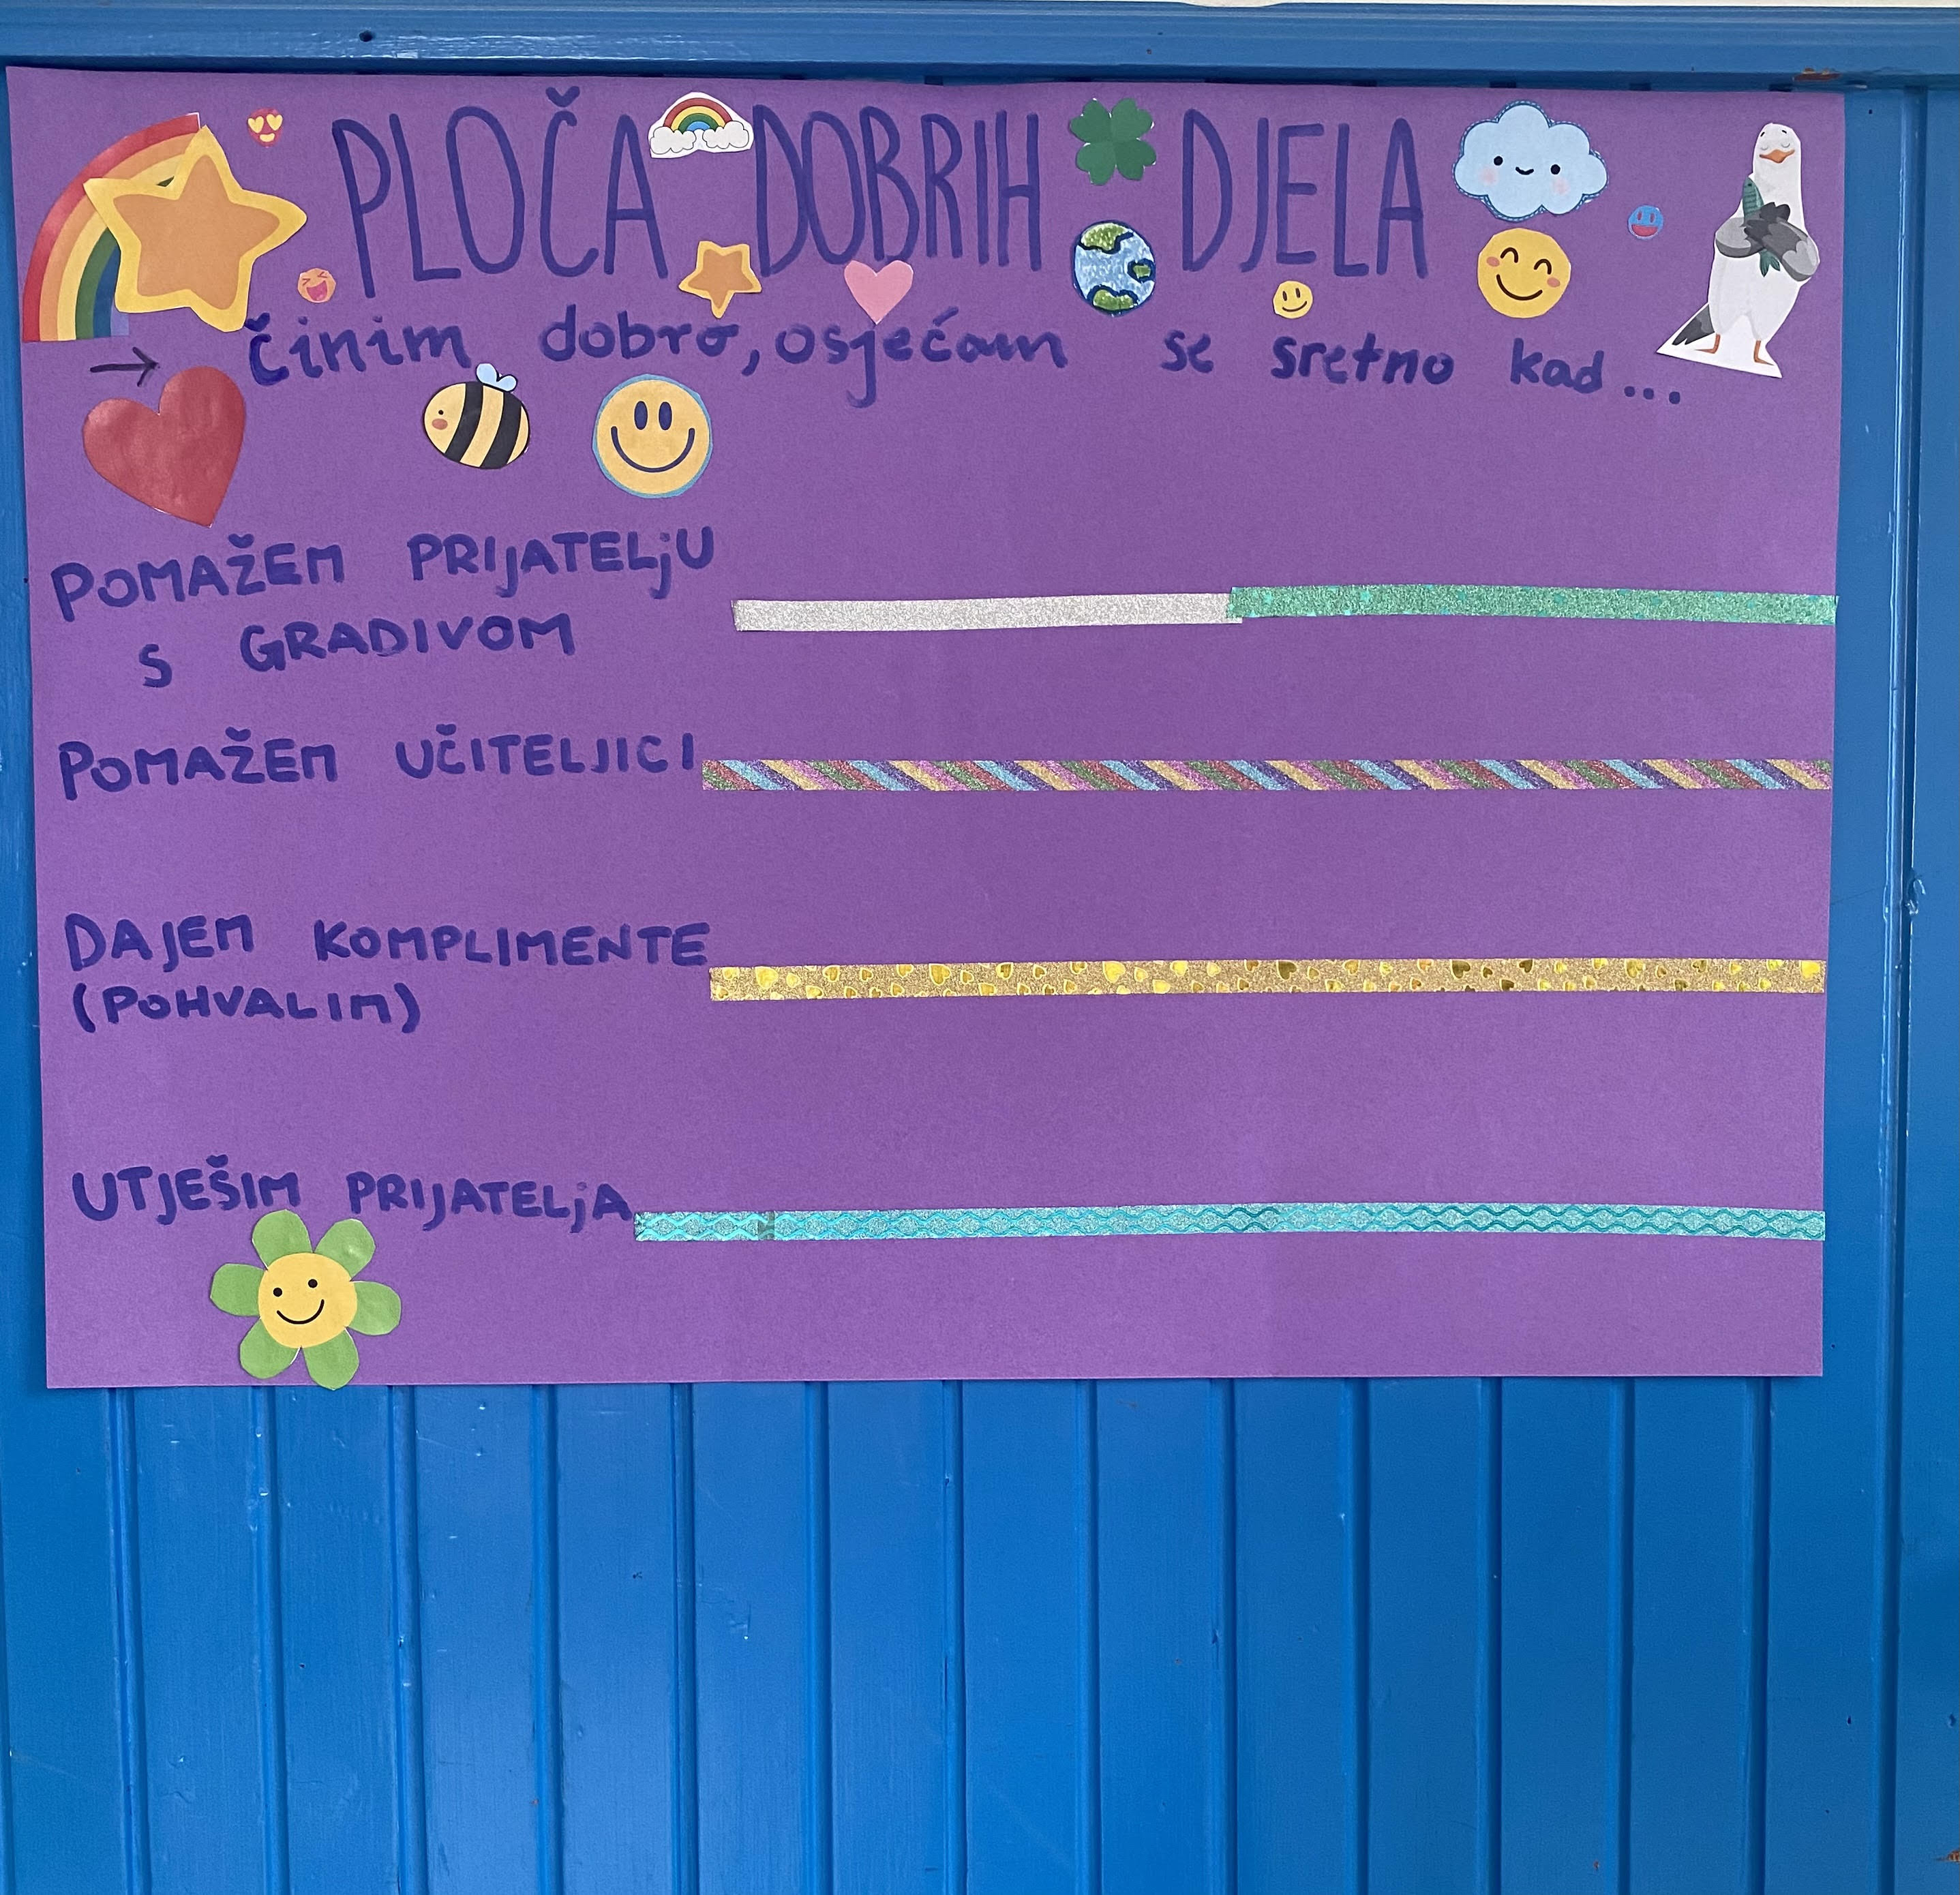 PLOČA DOBRIH DJELA
→ činim dobro, osjećam se sretno kad...
POMAŽEM PRIJATELjU
S GRADIVOM
POMAŽEM UČITELJICI
DAJEM KOMPLIMENTE
(POHVALIM)
UTJEŠIM PRIJATELjA